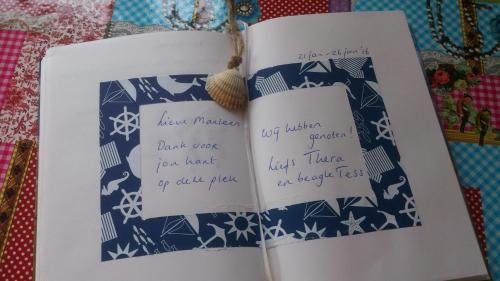 21 jan - 26 jan '26
Lieve Marleen
Dank voor
jou hart
op deze plek
Wij hebben
genoten!
Liefs Thera
en beagle Tess